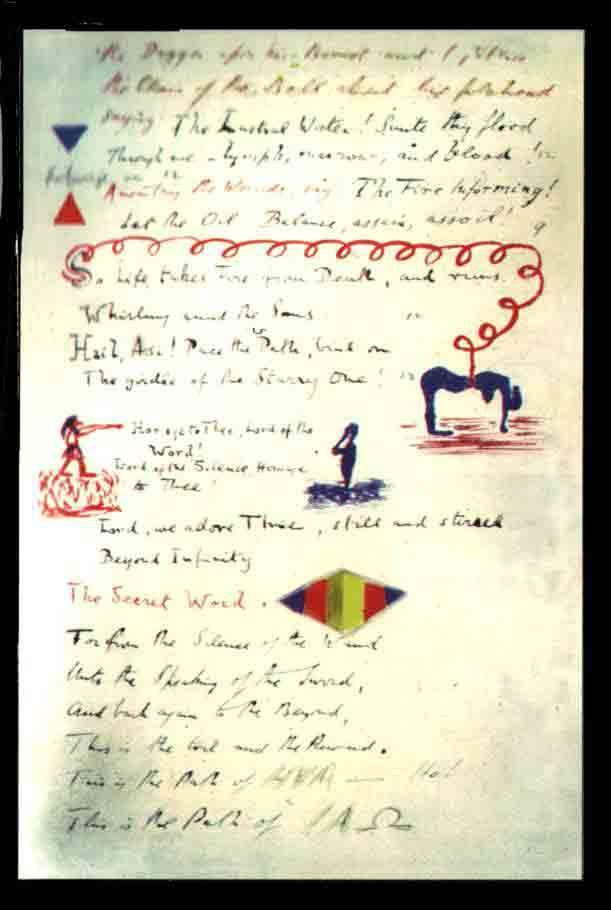 the Dagger upon his Breast and
the Chain of the Bell about his forehead
saying The Lustral Water! Smite thy flood
Through me - lymph, marrow, and blood!
Anointing the Wounds, say The Fire Informing!
Let the Oil Balance, assain, assoil!
So Life takes Fire from Death, and runs
Whirling amid the Suns.
Hail, Asi! Pace the Path, bind on
The girdle of the Starry One!
Homage to Thee, Lord of the
Word!
Lord of the Silence Homage
to Thee!
Lord, we adore Thee, still and stirred
Beyond Infinity
The Secret Word.
For from the Silence of the Wand
Unto the Speaking of the Sword,
And back again to the Beyond,
This is the toil and the Reward.
This is the Path of HVA — Ho!
This is the Path of IAΩ